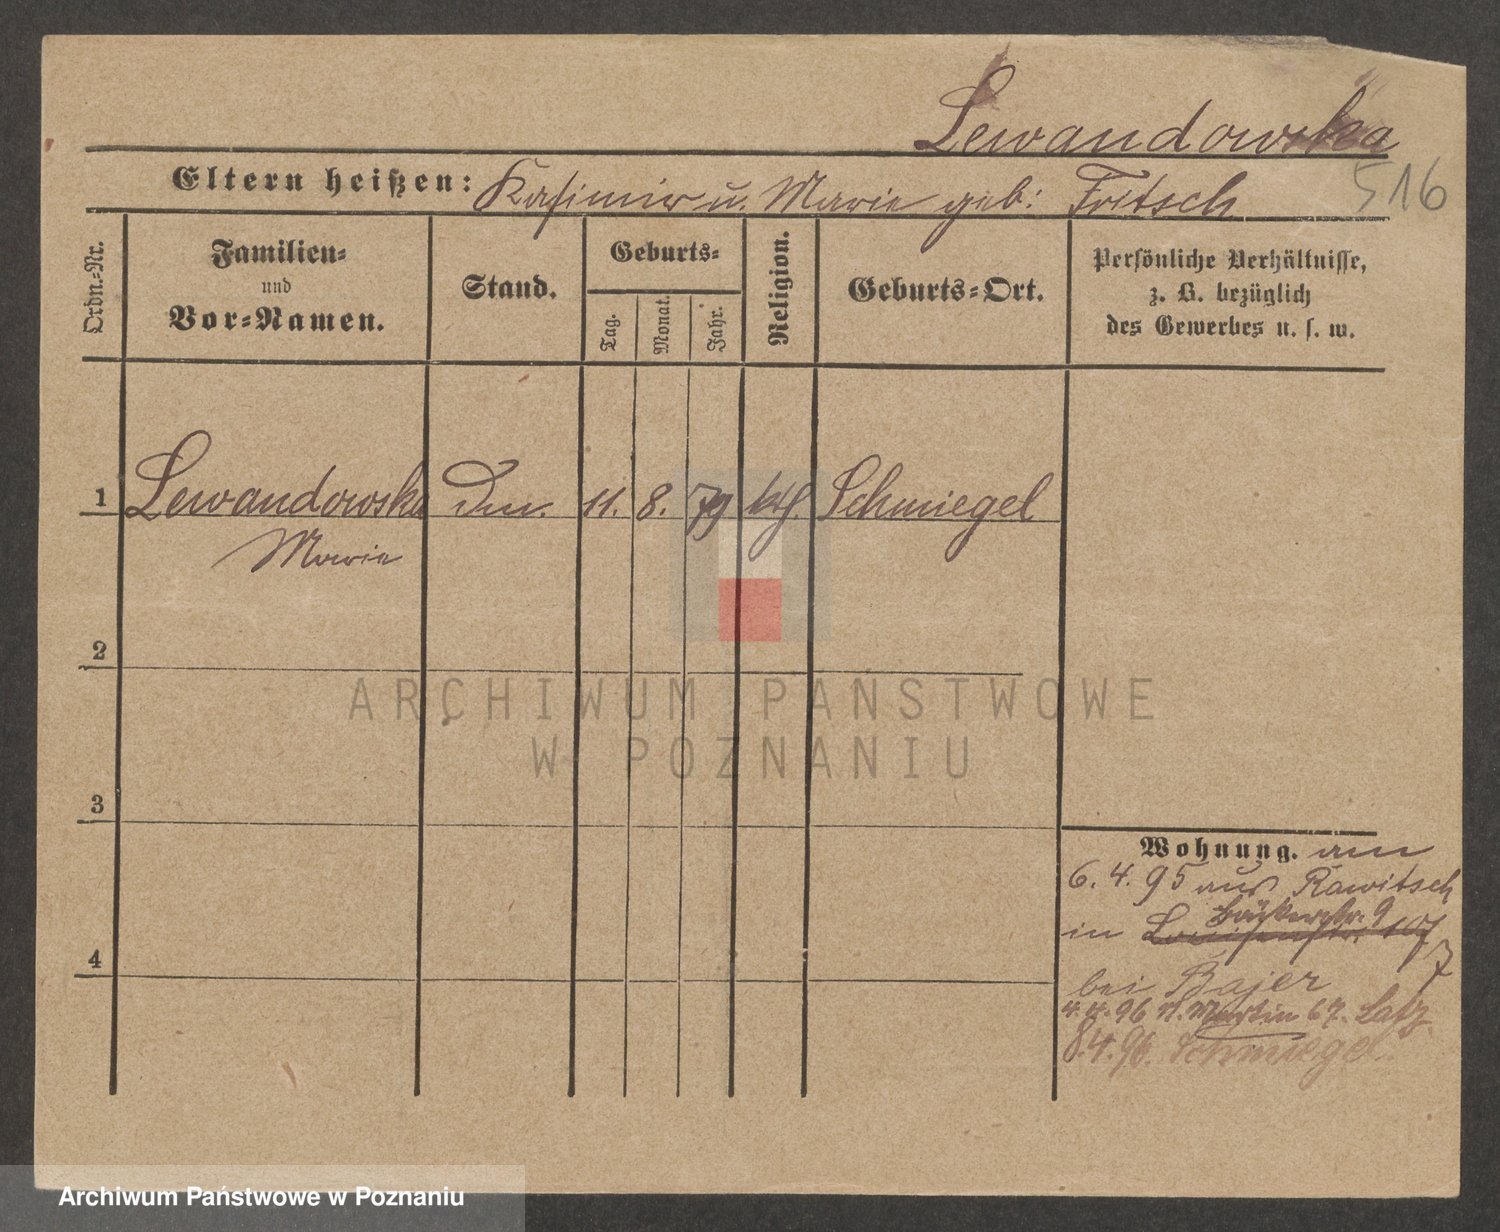 Lewandowska
Eltern heißen: Kasimir u. Marie geb: Fritsch
516
Ordn.-Nr.
Familien-
und
Vor-Namen.
Stand.
Geburts-
Tag.
Monat.
Jahr.
Religion.
Geburts-Ort.
Persönliche Verhältnisse,
z. B. bezüglich
des Gewerbes u. s. w.
1 Lewandowska 11. 8. 79 kth. Schmiegel
Marie
2
ARCHIWUM PAŃSTWOWE
W POZNANIU
3
Wohnung. am
6. 4. 95 aus Rawitsch
Bäckerstr. 9
in Louisenstr.
4
bei Bajer
4. 4. 96 St. Martin 67. Latz
8. 4. 96. Schmiegel.
Archiwum Państwowe w Poznaniu